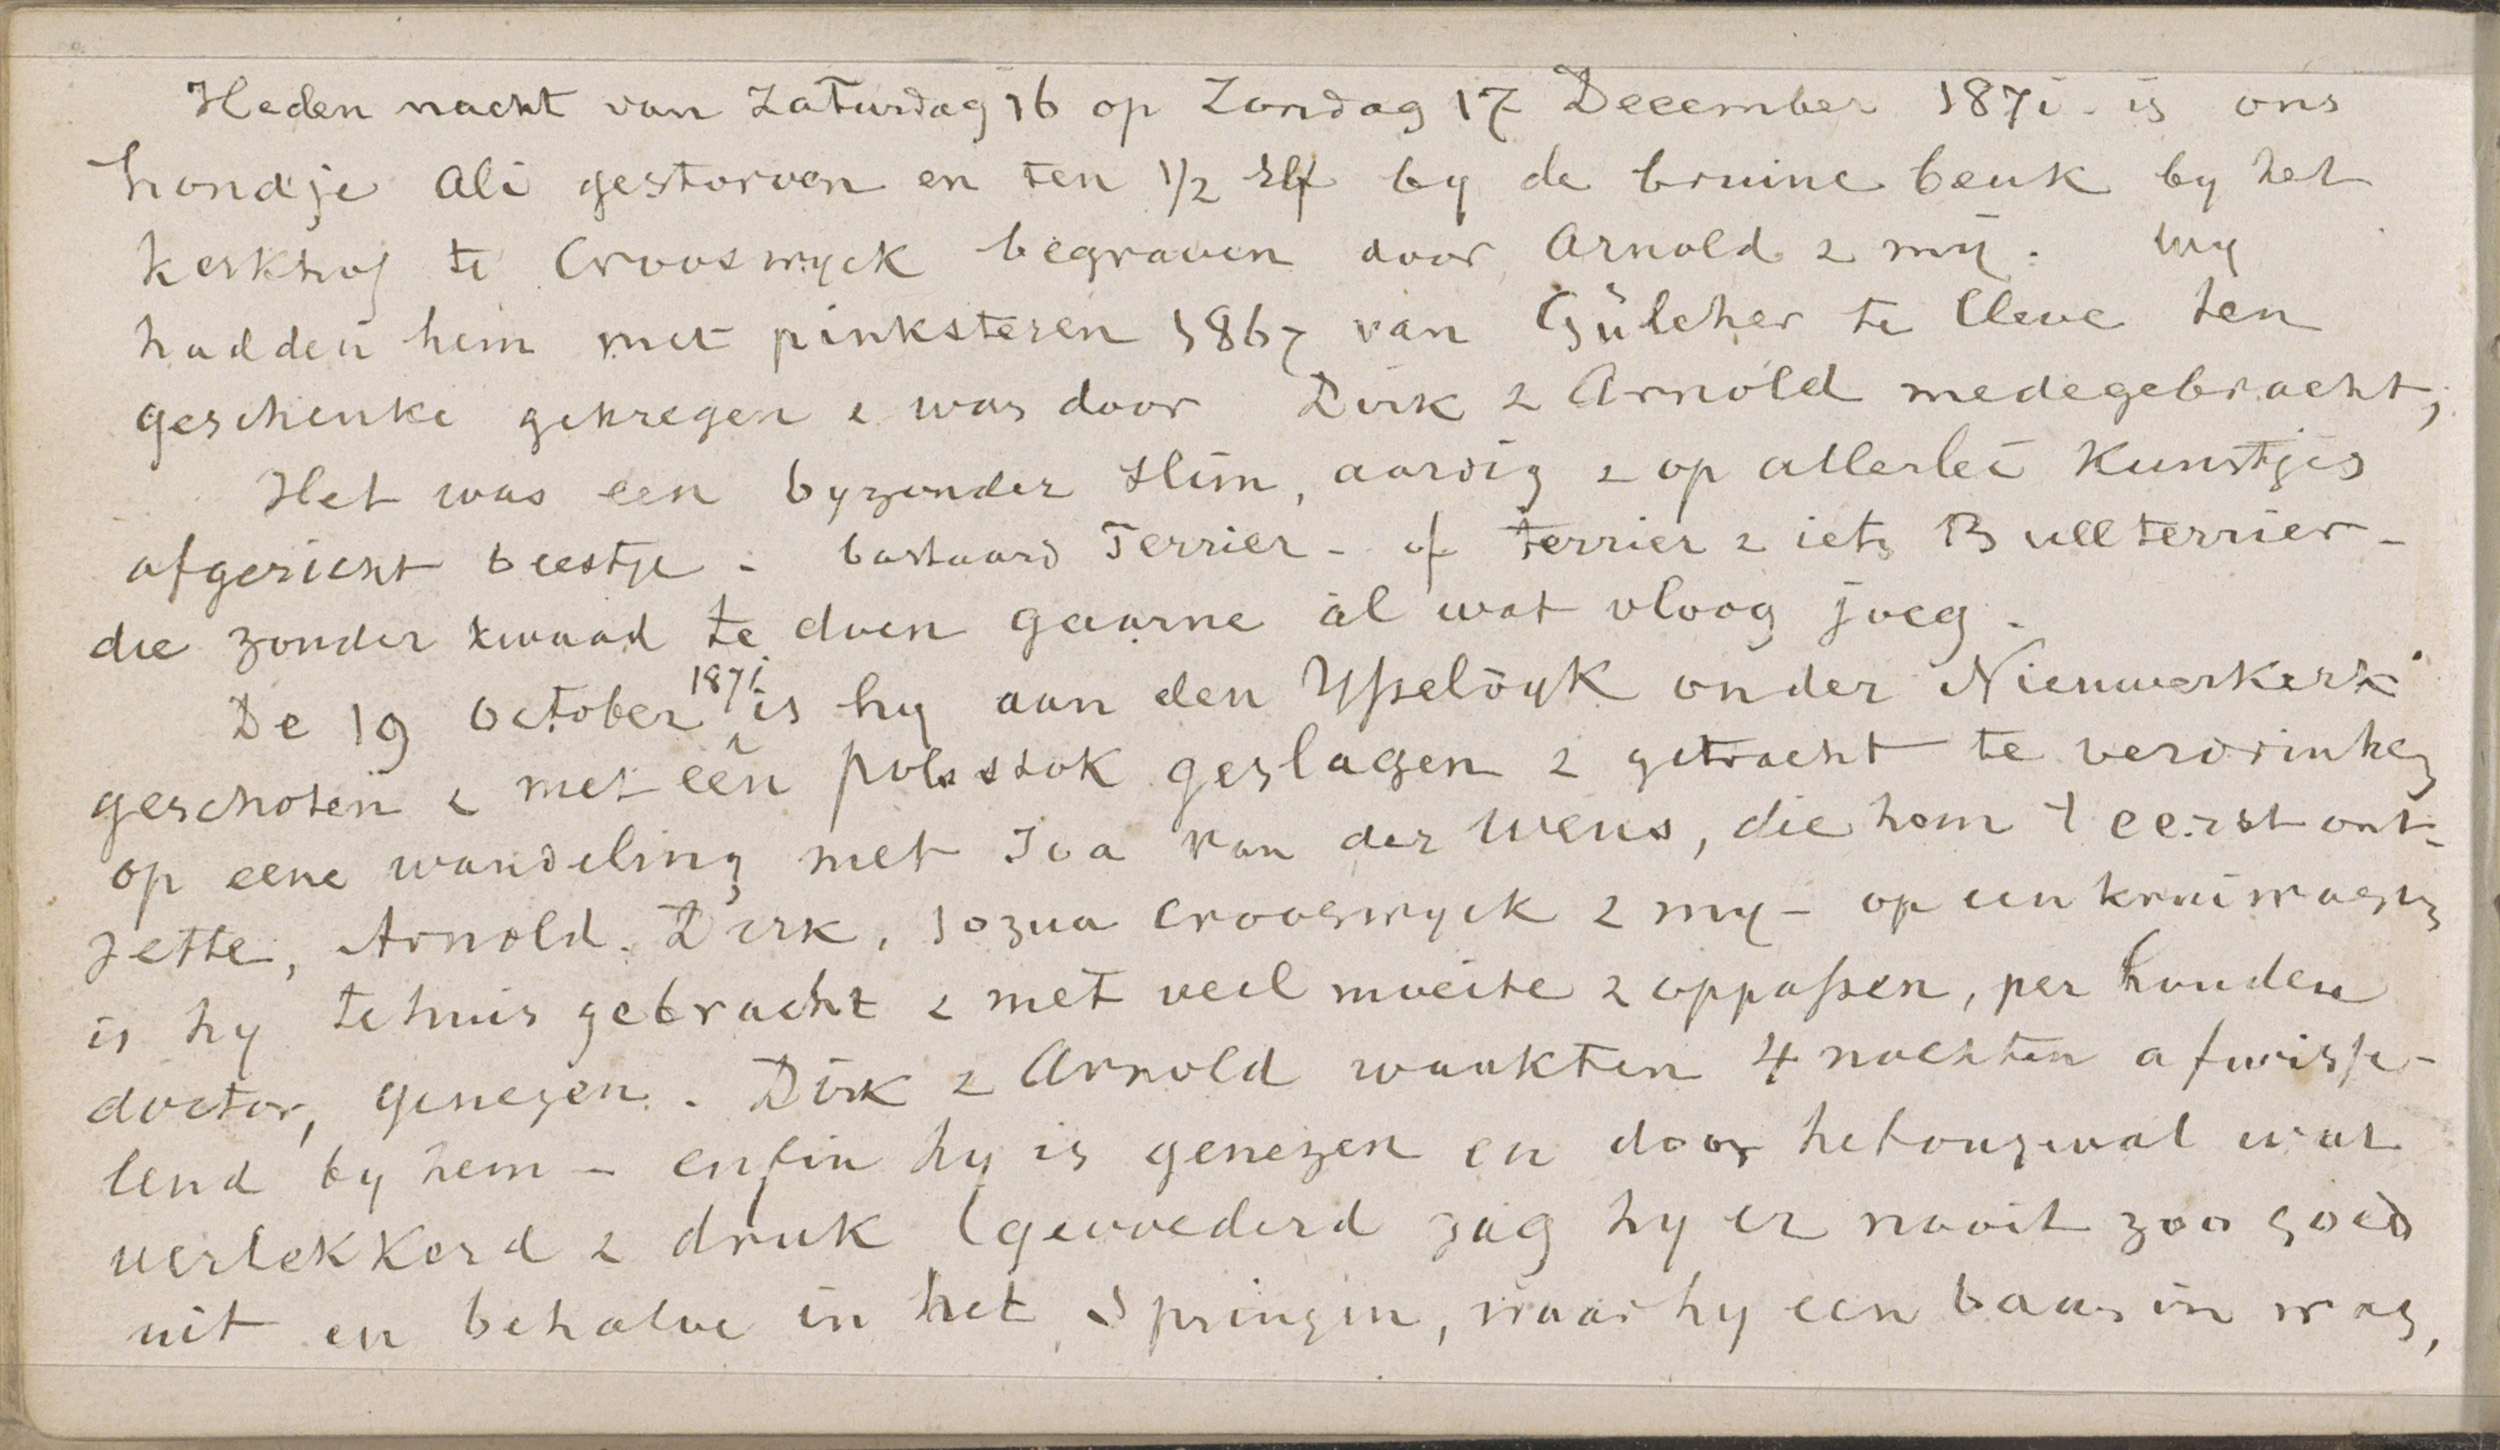 Heden nacht van Zaturdag 16 op Zondag 17 December 1871 - is ons
hondje Ali gestorven en ten 1/2 elf by de bruine beuk by het
kerkhof te Crooswyck begraven door Arnold & my. Wy
hadden hem met pinksteren 1867 van Gülcher te Cleve ten
geschenke gekregen & was door Dirk & Arnold medegebracht,
Het was een byzonder slim, aardig & op allerlei Kunstjes
afgericht beestje - bastaard Terrier - of terrier & iets Bullterrier -
die zonder kwaad te doen gaarne al wat vloog joeg.
De 19 October 1871 is hy aan den Ysseldyk onder Nieuwerkerk
geschoten & met een polsstok geslagen & getracht te verdrinken
op eene wandeling met Iva van der Wens, die hem 't eerst ont-
zette, Arnold. Dirk, Jozua Crooswyck & my - op een kruiwagen
is hy tehuis gebracht & met veel moeite & oppassen, per honden
doctor, genezen. Dirk & Arnold waakten 4 nachten afwisse-
lend by hem - enfin hy is genezen en door het ongeval wat
verlekkerd & druk gevoederd zag hy er nooit zoo goed
uit en behalve in het springen, waar hy een baas in was,